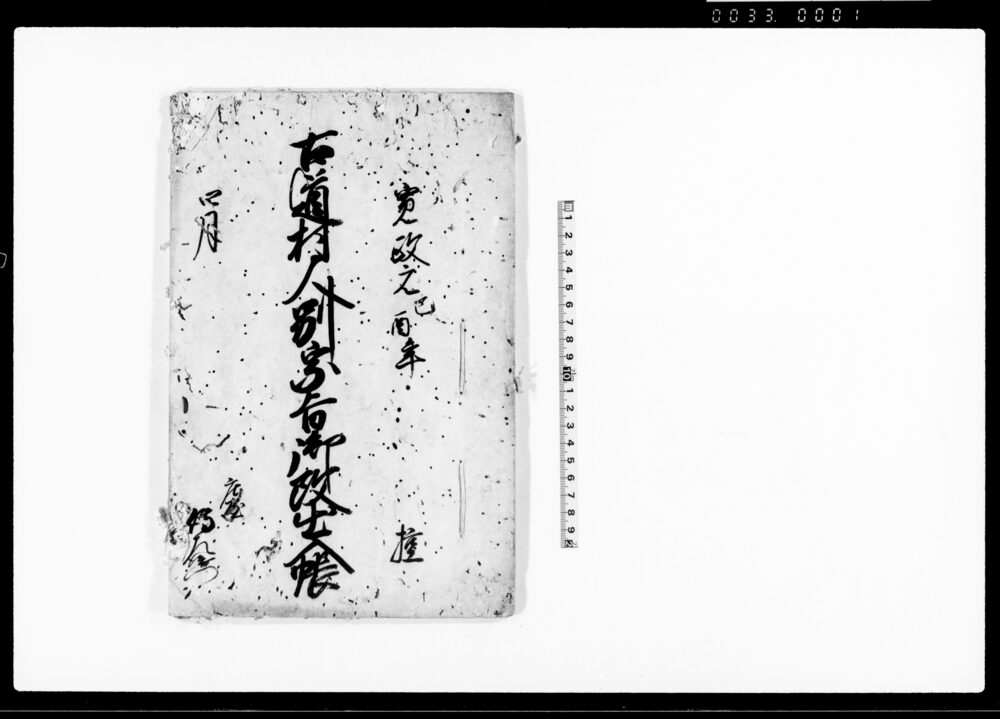 0033. 0001
寛政元己酉年
控
古道村人別宗旨御改出入帳
四月
庄屋
1 2 3 4 5 6 7 8 9 10 1 2 3 4 5 6 7 8 9